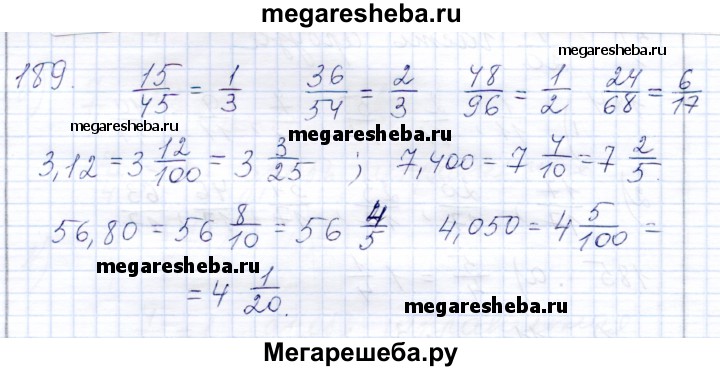 megaresheba.ru
189. 15/45 = 1/3 36/54 = 2/3 48/96 = 1/2 24/68 = 6/17
megaresheba.ru
megaresheba.ru
megaresheba.ru
3,12 = 3 12/100 = 3 3/25 ; 7,400 = 7 4/10 = 7 2/5.
56,80 = 56 8/10 = 56 4/5 4,050 = 4 5/100 =
megaresheba.ru
= 4 1/20.
megaresheba.ru
Мегарешеба.ру